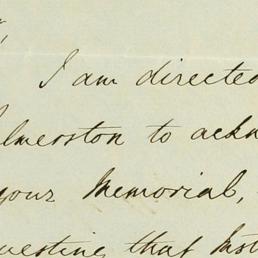 I am directed
lmerston to ackn
your Memorial,
uesting that Inst